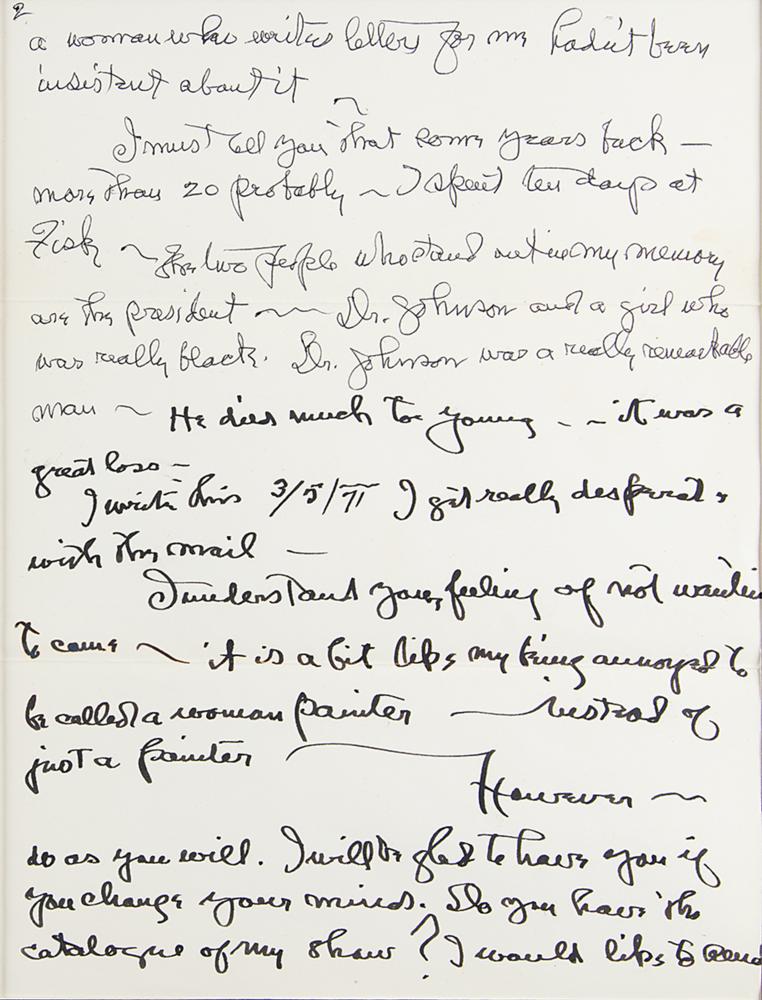 2
a woman who writes letters for me hadn't been
insistent about it ~
I must tell you that some years back —
more than 20 probably ~ I spent ten days at
Fisk ~ The two people who stand out in my memory
are the president ~~ Dr. Johnson and a girl who
was really black. Dr. Johnson was a really remarkable
man ~ He died much too young - ~ it was a
great loss —
I write this 3/5/71 I get really desperate
with the mail —
I understand your feeling of not wantin
to come ~ it is a bit like my being annoyed to
be called a woman painter — instead of
just a painter —
However ~
do as you will. I will be glad to have you if
you change your mind. Do you have the
catalogue of my show? I would like to send